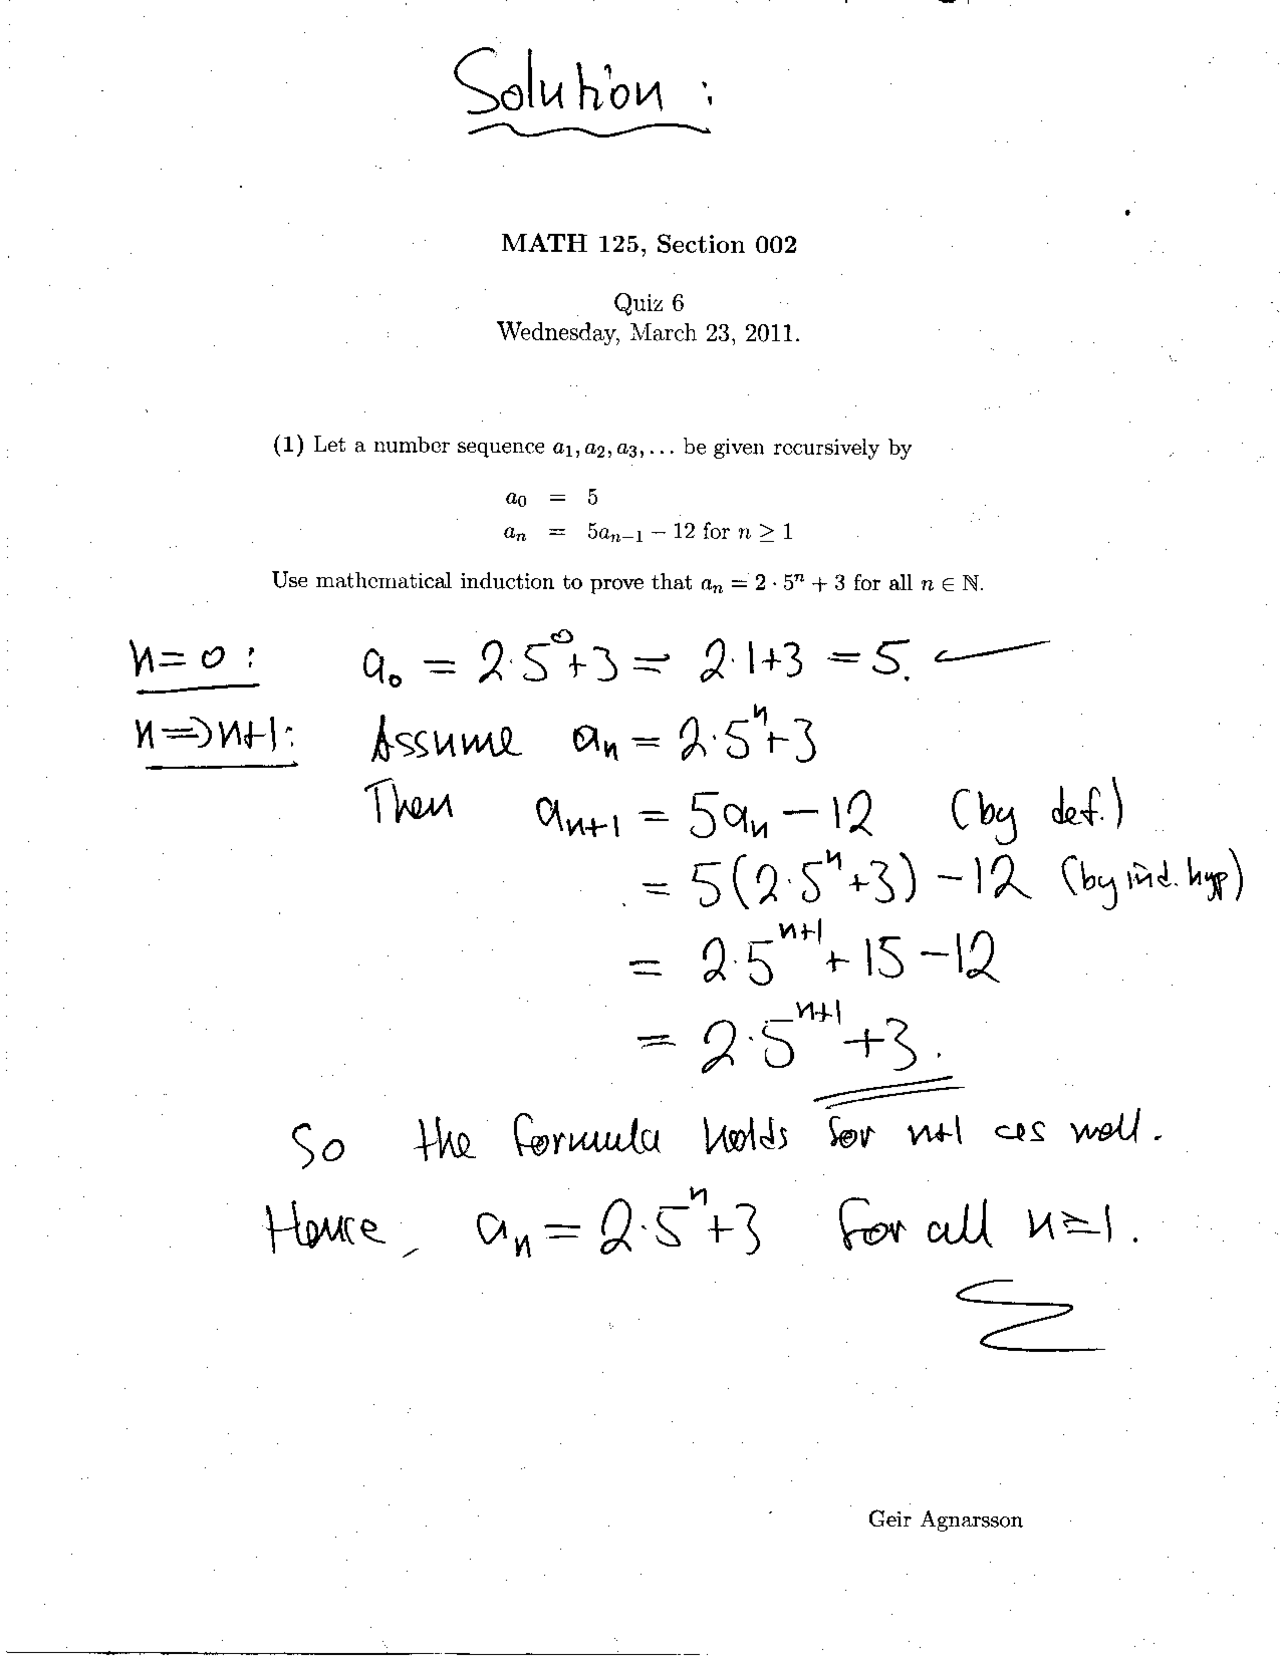 Solution :
MATH 125, Section 002
Quiz 6
Wednesday, March 23, 2011.
(1) Let a number sequence a₁, a₂, a₃, ... be given recursively by
a₀ = 5
aₙ = 5aₙ₋₁ − 12 for n ≥ 1
Use mathematical induction to prove that aₙ = 2 · 5ⁿ + 3 for all n ∈ ℕ.
n=0: a₀ = 2·5⁰+3 = 2·1+3 = 5. ✓
n⇒n+1: Assume aₙ = 2·5ⁿ+3
Then aₙ₊₁ = 5aₙ − 12 (by def.)
= 5(2·5ⁿ+3) − 12 (by ind. hyp)
= 2·5ⁿ⁺¹ + 15 − 12
= 2·5ⁿ⁺¹ + 3.
So the formula holds for n+1 as well.
Hence, aₙ = 2·5ⁿ+3 for all n≥1.
Geir Agnarsson